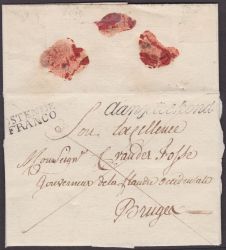 STENDE
FRANCO
Son Excellence
Monseignr Vander Fosse
Gouverneur de la flandre occidentale
Bruges